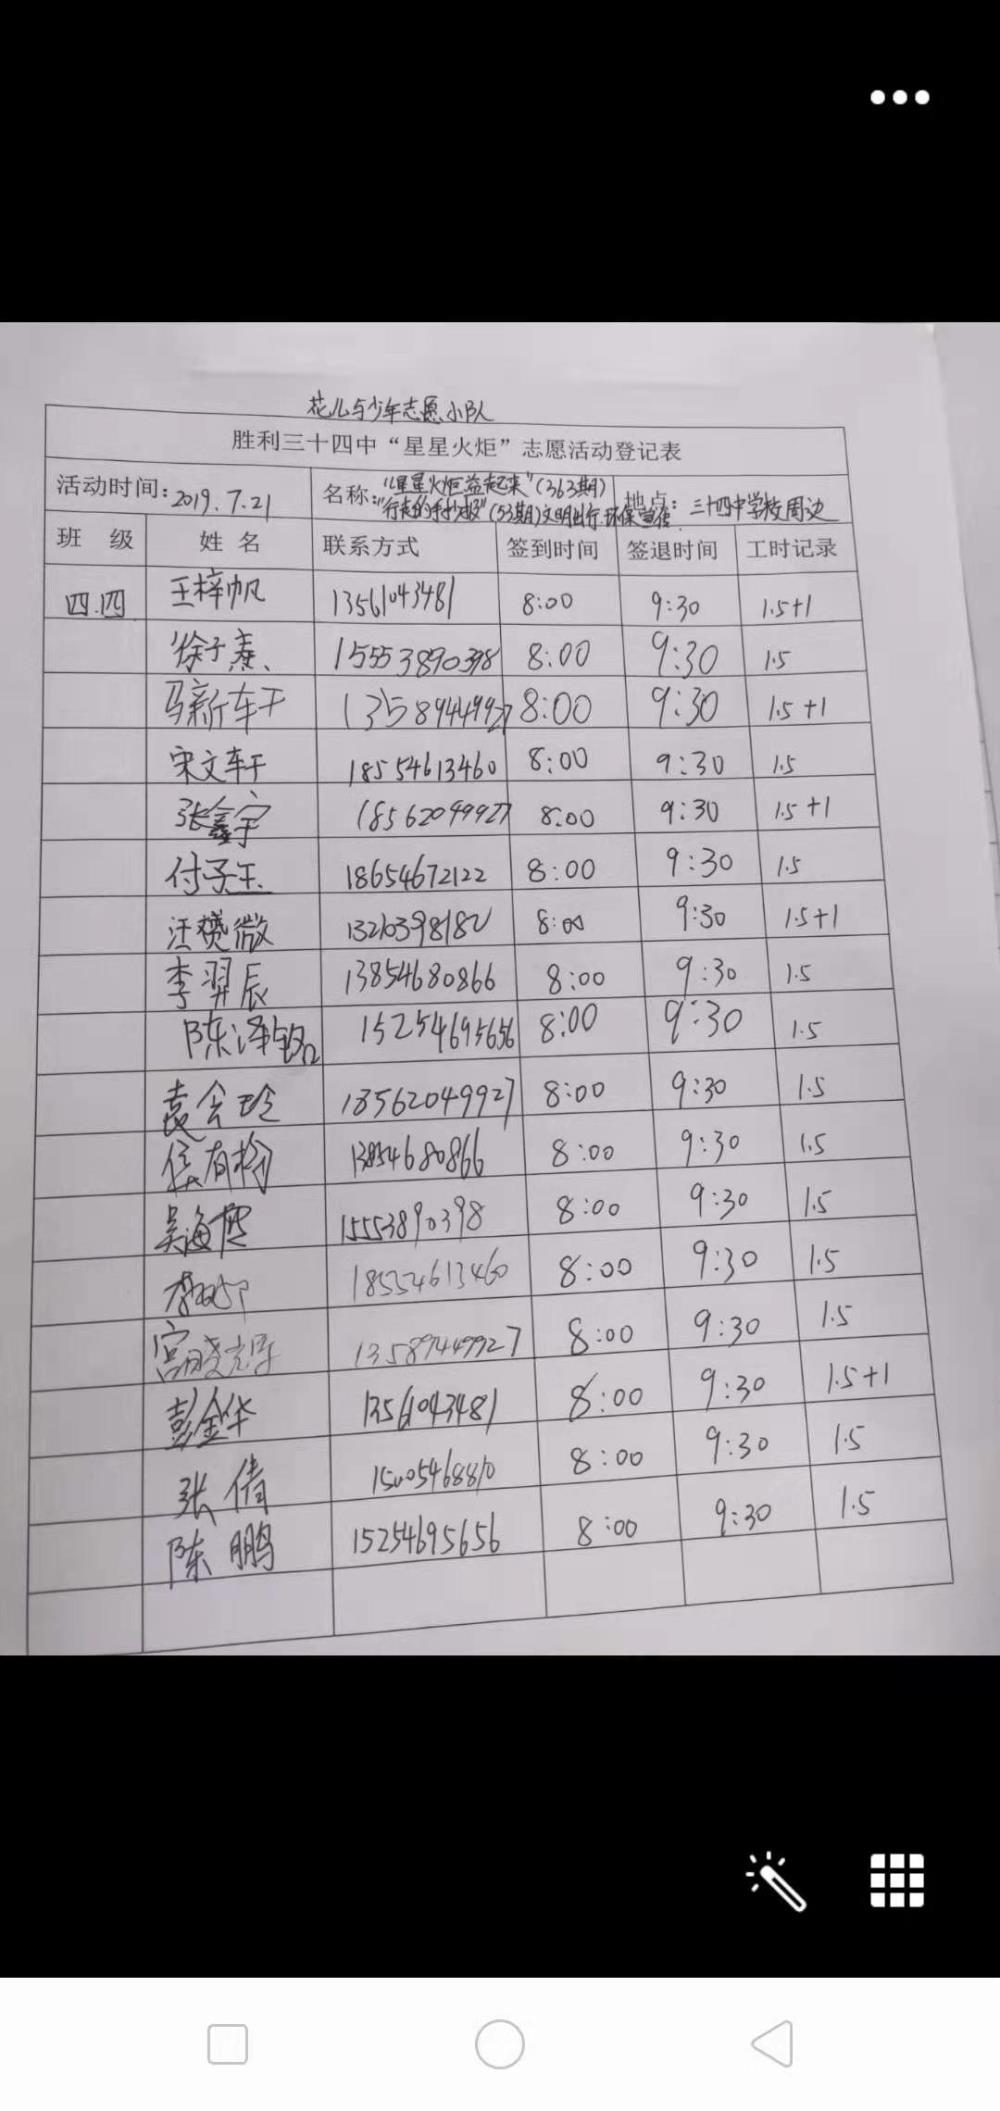 花儿与少年志愿小队
胜利三十四中“星星火炬”志愿活动登记表
活动时间:2019.7.21 名称:“星星火炬益起来”(363期) 地点: 三十四中学校周边
“行走的手抄报”(53期)文明出行.环保宣传
班 级 姓 名 联系方式 签到时间 签退时间 工时记录
四.四 王梓帆 13561043481 8:00 9:30 1.5+1
徐子 15553890398 8:00 9:30 1.5
马新轩 13589449927 8:00 9:30 1.5+1
宋文轩 18554613460 8:00 9:30 1.5
张鑫宇 18562049927 8:00 9:30 1.5+1
付子玉 18654672122 8:00 9:30 1.5
汪 微 13210398182 8:00 9:30 1.5+1
李羿辰 13854680866 8:00 9:30 1.5
陈泽铭 15254695656 8:00 9:30 1.5
袁会珍 18562049927 8:00 9:30 1.5
侯有 13854680866 8:00 9:30 1.5
吴海 15553890398 8:00 9:30 1.5
18554613460 8:00 9:30 1.5
宫晓 13589449927 8:00 9:30 1.5
彭金华 13561043481 8:00 9:30 1.5+1
张倩 15005468810 8:00 9:30 1.5
陈鹏 15254695656 8:00 9:30 1.5